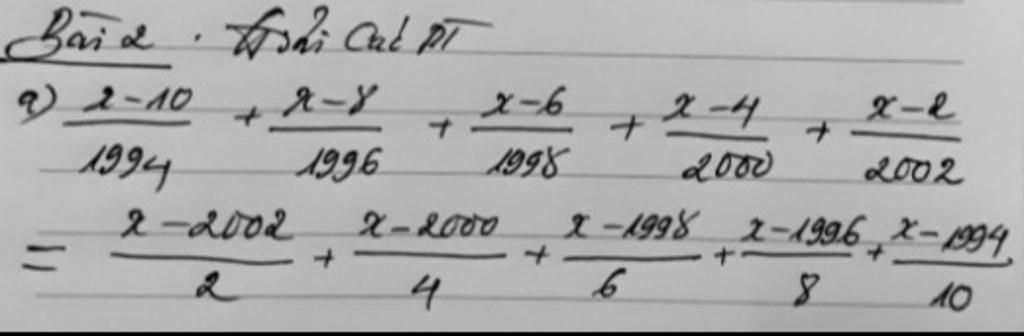 Bài 2. Giải Các PT
a) x-10/1994 + x-8/1996 + x-6/1998 + x-4/2000 + x-2/2002
= x-2002/2 + x-2000/4 + x-1998/6 + x-1996/8 + x-1994/10